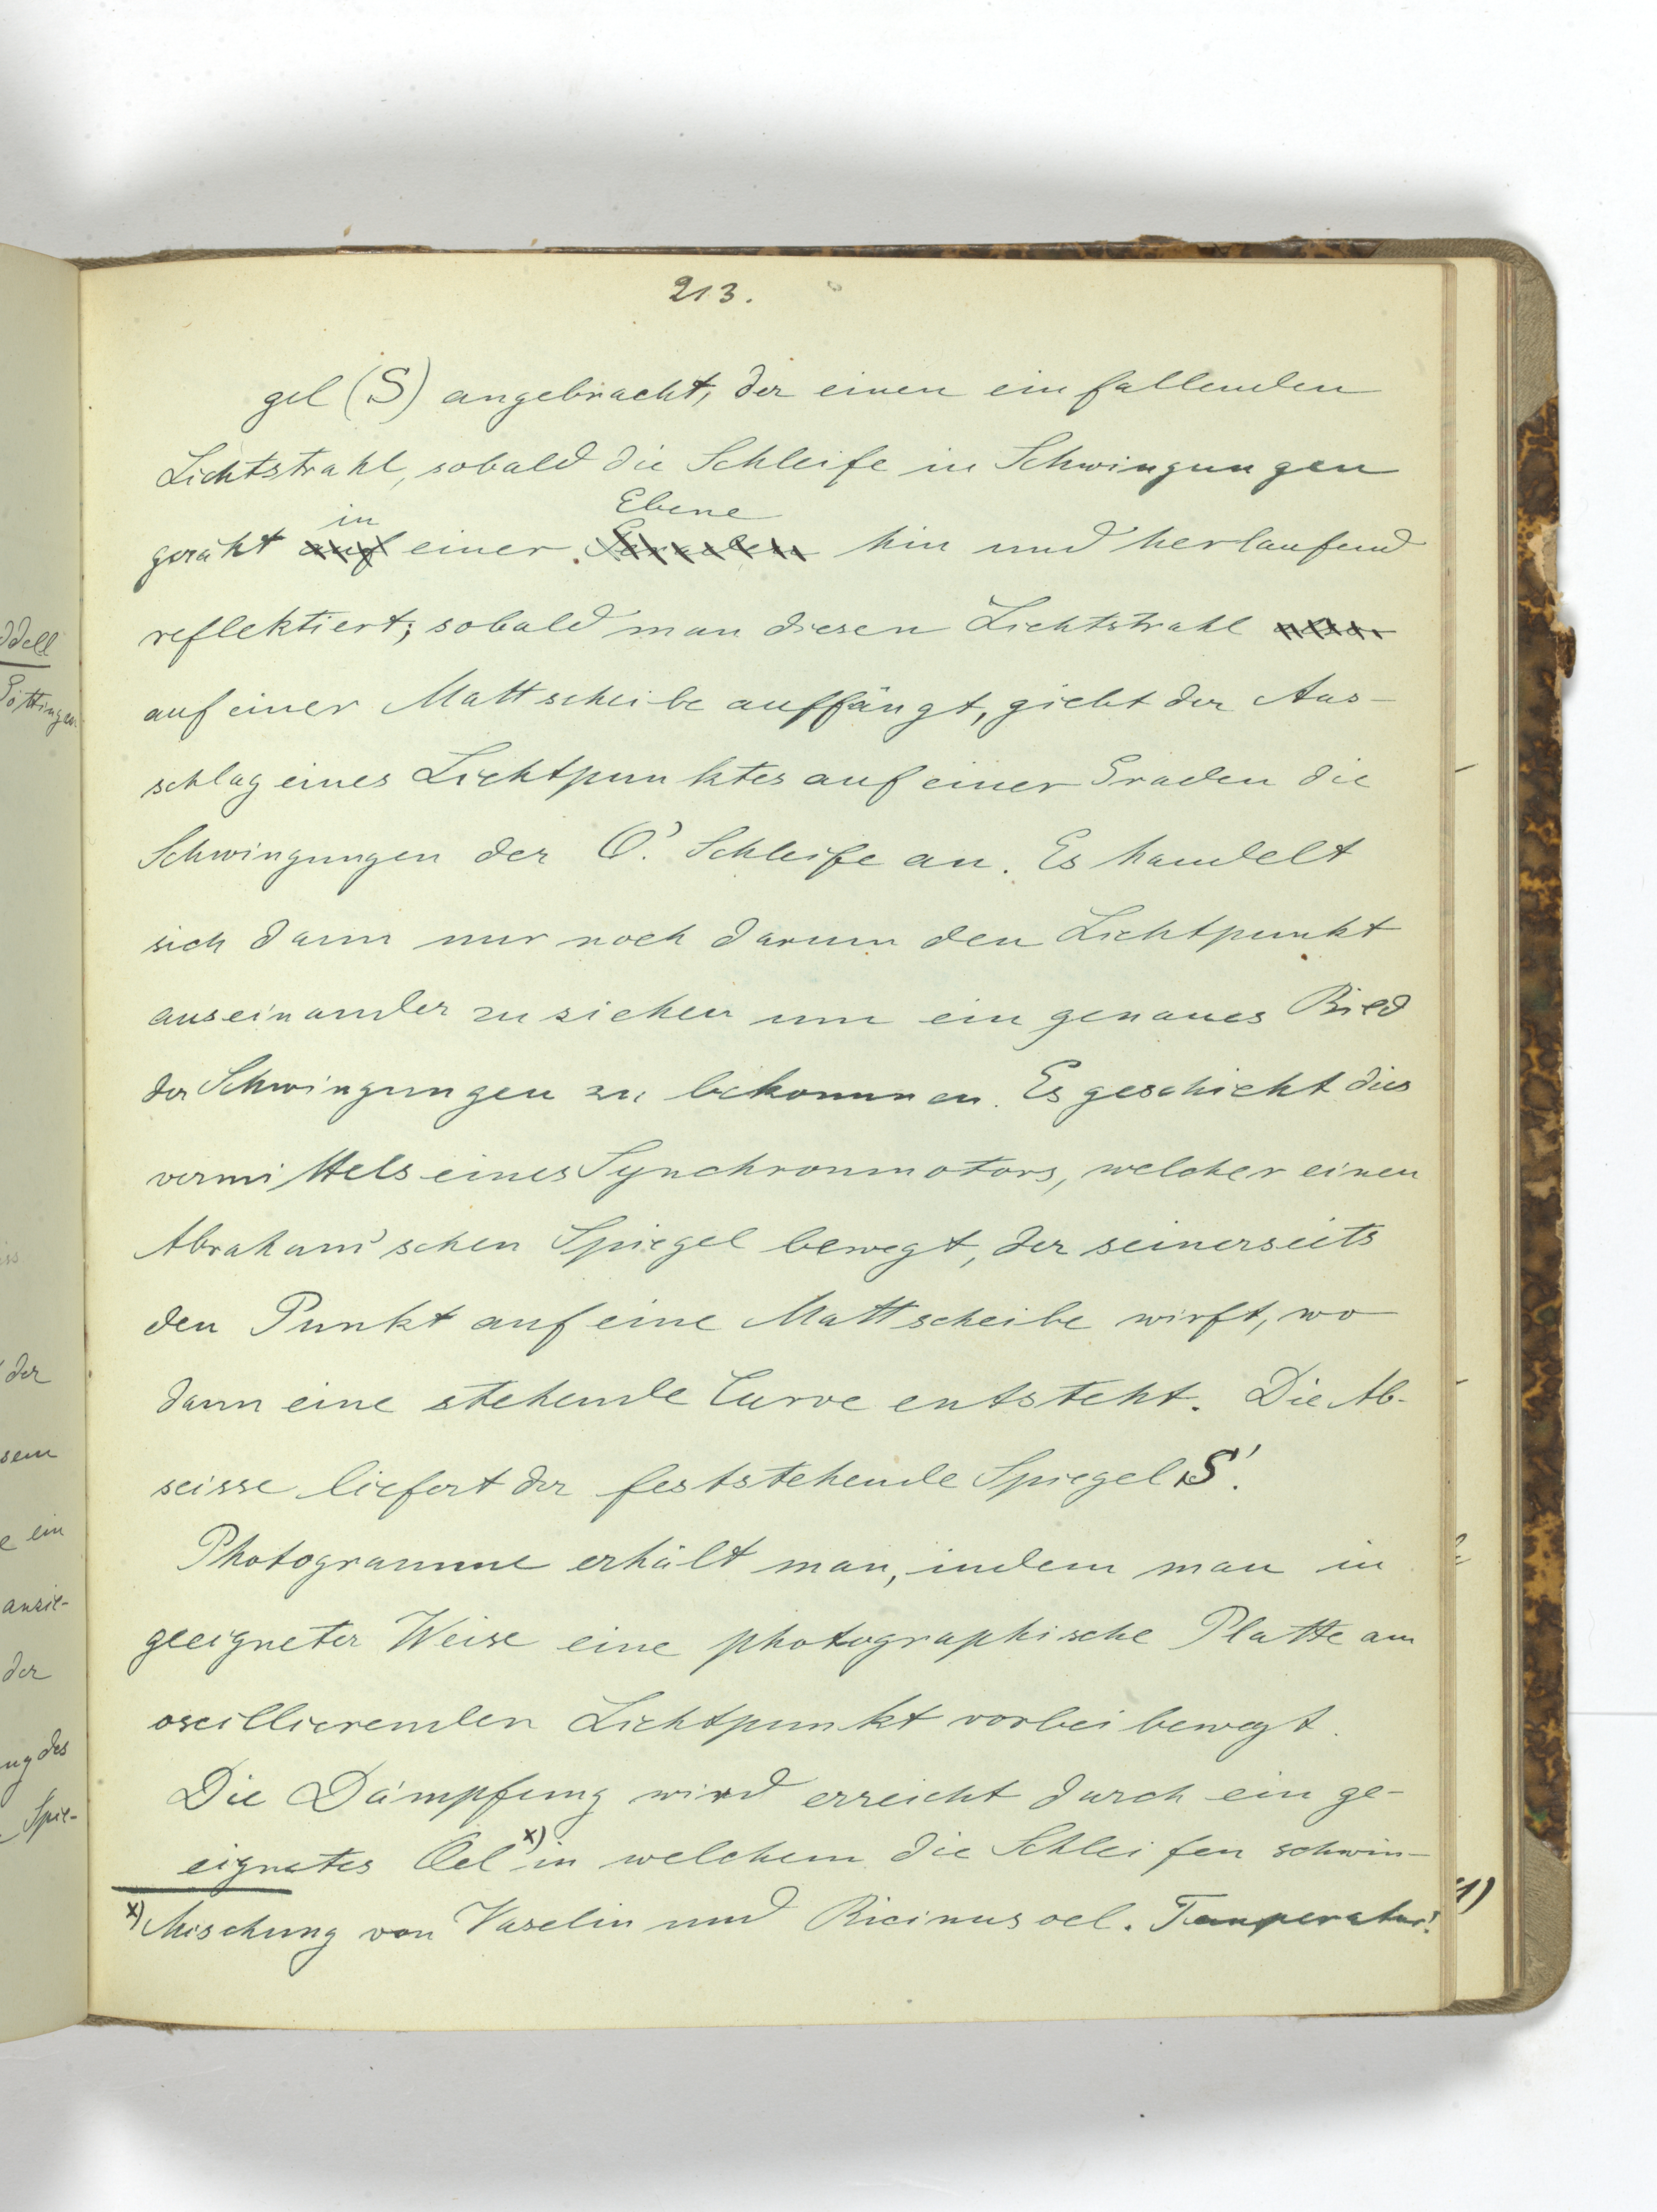 213.
gel (S) angebracht, der einen einfallenden
Lichtstrahl, sobald die Schleife in Schwingungen
in Ebene
geräht auf einer Geraden hin und herlaufend
reflektiert; sobald man diesen Lichtstrahl
auf einer Mattscheibe auffängt, giebt der Aus-
schlag eines Lichtpunktes auf einer Graden die
Schwingungen der O'. Schleife an. Es handelt
sich dann nur noch darum den Lichtpunkt
auseinander zu ziehen um ein genaues Bild
der Schwingungen zu bekommen. Es geschieht dies
vermittels eines Synchronmotors, welcher einen
Abraham'schen Spiegel bewegt, der seinerseits
den Punkt auf eine Mattscheibe wirft, wo
dann eine stehende Curve entsteht. Die Ab-
scisse liefert der feststehende Spiegel S'.
Photogramme erhält man, indem man in
geeigneter Weise eine photographische Platte am
oscillierenden Lichtpunkt vorbei bewegt.
Die Dämpfung wird erreicht durch ein ge-
eignetes Oel x) in welchem die Schleifen schwin-
x) Mischung von Vaselin und Ricinusoel. Temperatur!
ddell
Göttingen.
der
sem
e ein
anzie-
der
ung des
Spie-
1)